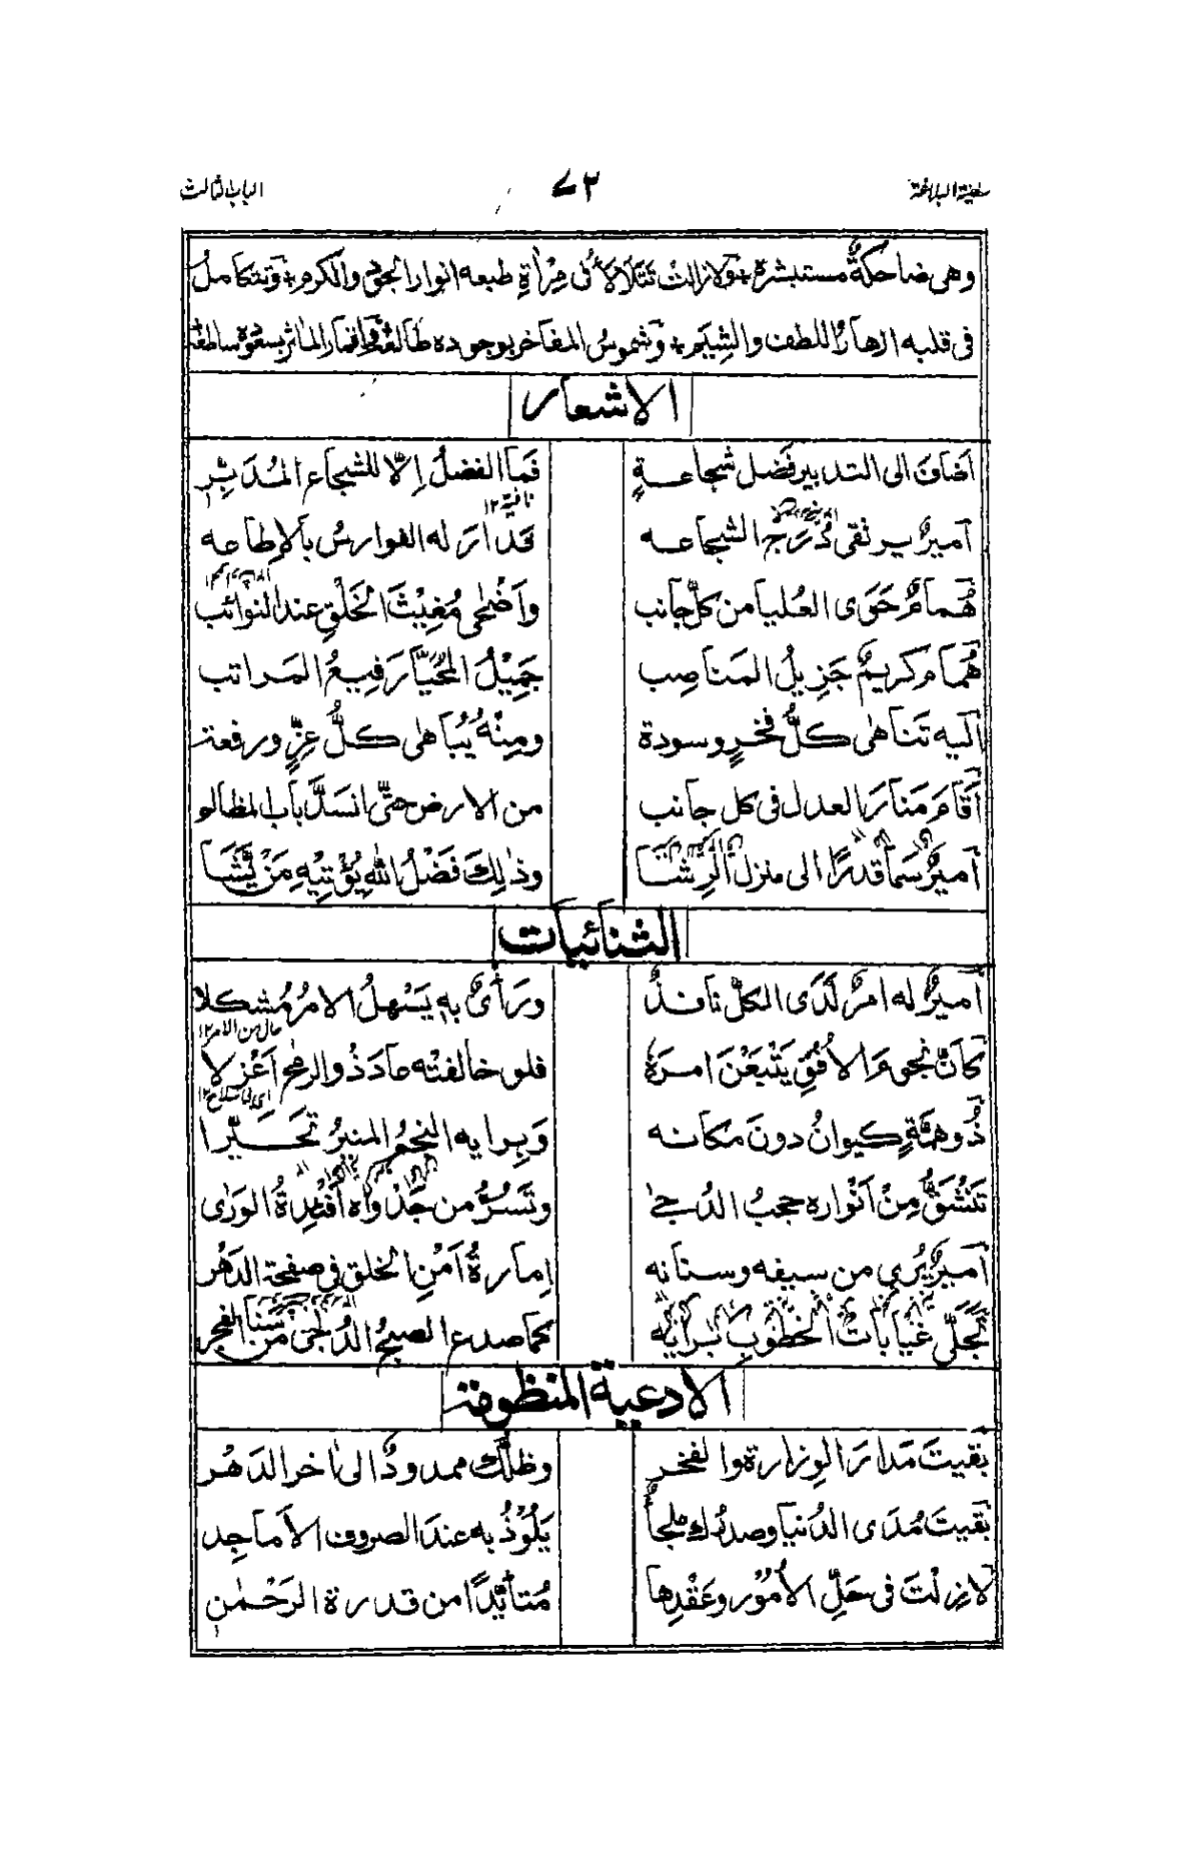 سفينة البلاغة
٧٢
الباب الثالث
وهى ضاحكةٌ مستبشرة + ولازالتْ تَتَلَأْلَأُ فى مِرْأةِ طبعه انوار الجود والكرم + وتتكامل
فى قلبه ازهارُ اللطف والشِيَم + وشموسُ المفاخر بوجوده طالعة واقمار الماثر بسعوده ساطعة
الاشعار
اضافَ الى التدبير فَضل شجاعةٍ فَما الفضلُ اِلّا للشجاع المُدَبِّرِ
نافية ١٢
اَميرٌ يرتقى دُرَجَ الشجاعه قدارَ له الفوارسُ بالاِطاعه
هُمامٌ حَوَى العُليا من كلِّ جانب واَضْحى مُغِيْثَ الخَلْقِ عند النوائب
هُمام كريمٌ جَزِيلُ المَناصِب جَمِيْلُ المُحَيَّا رَفِيعُ المَراتب
اليه تَناهى كلُّ فخرٍ وسودة ومِنْهُ يُباهى كلُّ عِزٍّ ورفعة
اَقامَ مَنارَ العدل فى كل جانب من الارض حتّى انسَدَّ باب المظالم
اَميرٌ سَما قدرًا الى منزل الرِشَا وذٰلِكَ فَضْلُ اللهِ يُؤْتِيْهِ مَنْ يَّشَا
الثنائيات
اَميرٌ له امرٌ لَدَى الكلّ نافذٌ ورَأىٌ بِهٖ يَسْهلُ الامرُ مُشكلا
حال من الامر ١٢
كاَنّ نجومَ الاُفُقِ يَتْبَعْنَ امرَهُ فلو خالفتْه عادَ ذُو الرمح اَعْزلا
اى بلا سلاح ١٢
ذُو هِمَّةٍ كيوانُ دونَ مكانه وَبِرايه النجمُ المنيرُ تَحَيَّرا
تَنْشَقُّ مِنْ اَنْواره حجبُ الدُجىٰ وتَسُرُّ من جَدْواه اَفْئِدةُ الوَرٰى
اَميرٌ يُرى من سيفه وسنانه اِمارةُ اَمْنِ الخلق فى صفحة الدَهْر
تُجَلّى غَيابَاتُ الخُطُوبِ بِرَأيِه كما صدع الصبحُ الدُجٰى من سَنَا الفجر
الادعية المنظومة
بقيتَ مَدارَ الوِزارة والفخر وظلُّك ممدودٌ الى اٰخر الدَهْر
بَقيتَ مُدَى الدُنيا وصدرُك ملجأ يَلُوْذُ به عندَ الصروف الاَماجِد
لازِلْتَ فى حَلِّ الأُمُوْر وعَقْدِها مُتأيِّدًا من قدرة الرَحْمٰن